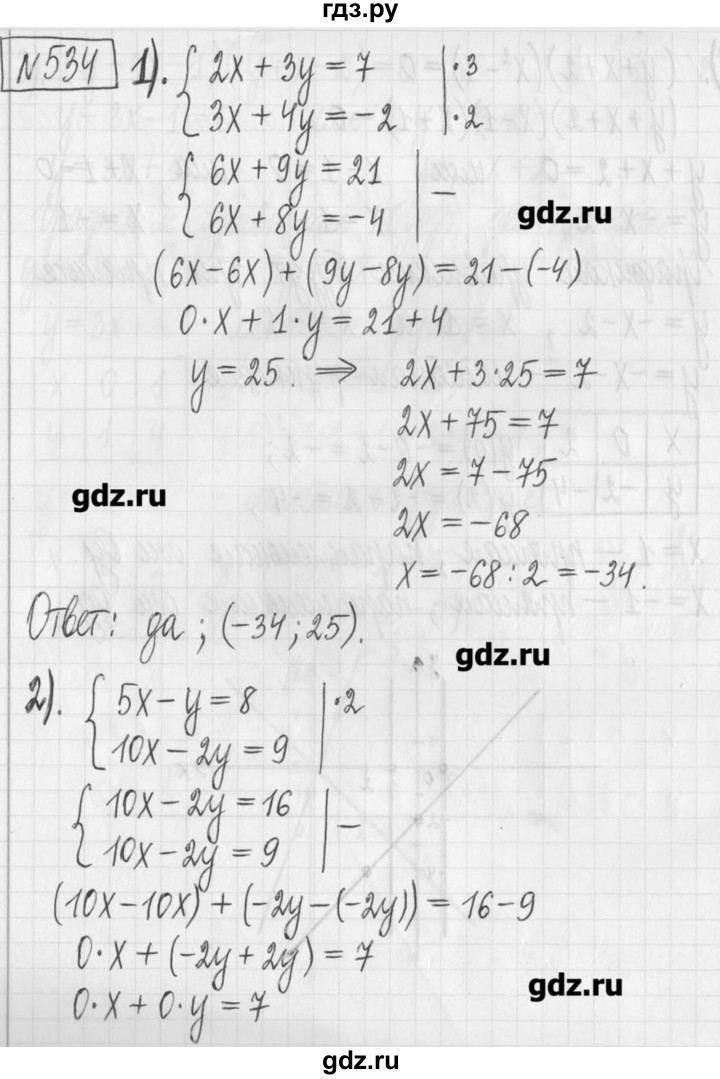 гдз.ру
№534 1). { 2x + 3y = 7 | ·3
3x + 4y = -2 | ·2
{ 6x + 9y = 21 | –
6x + 8y = -4
gdz.ru
(6x - 6x) + (9y - 8y) = 21 - (-4)
0·x + 1·y = 21 + 4
y = 25. ⇒ 2x + 3·25 = 7
2x + 75 = 7
2x = 7 - 75
gdz.ru
2x = -68
x = -68 : 2 = -34.
Ответ: да ; (-34 ; 25).
gdz.ru
2). { 5x - y = 8 | ·2
10x - 2y = 9
{ 10x - 2y = 16 | –
10x - 2y = 9
(10x - 10x) + (-2y - (-2y)) = 16 - 9
0·x + (-2y + 2y) = 7
gdz.ru
0·x + 0·y = 7
gdz.ru